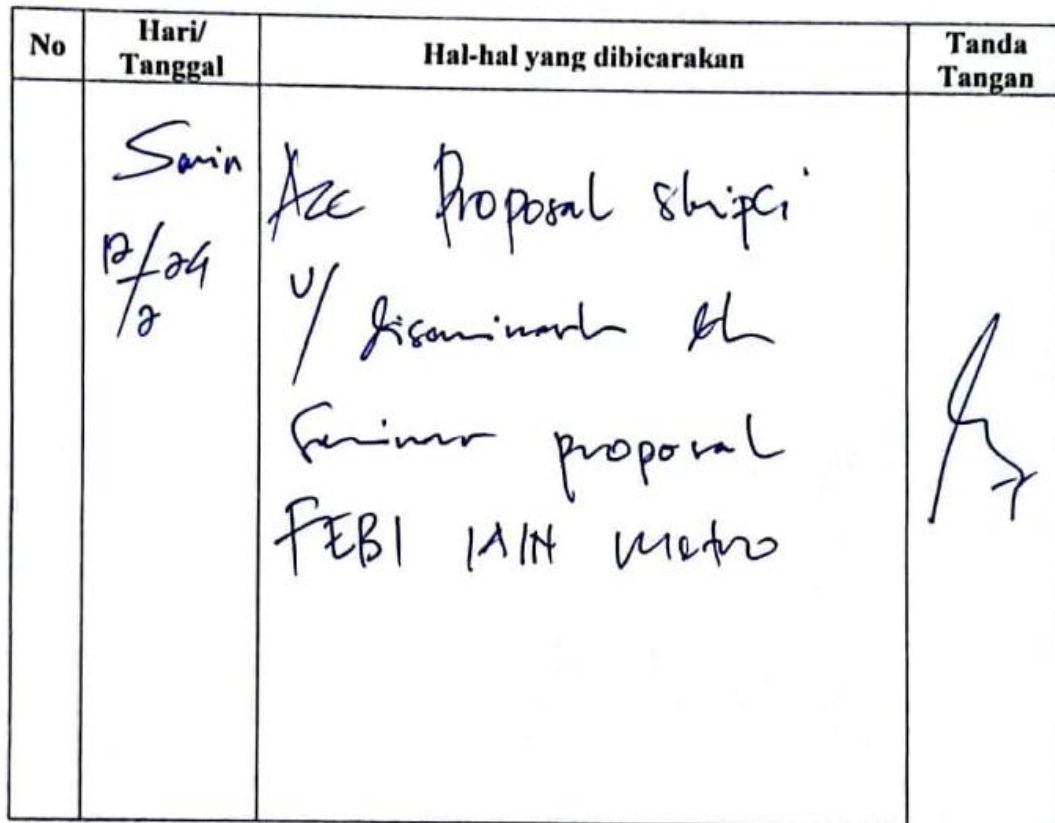 No Hari/ Tanggal Hal-hal yang dibicarakan Tanda Tangan
Senin
12/2 24
Acc Proposal skripsi
u/ diseminarkan
Seminar proposal
FEBI IAIN Metro